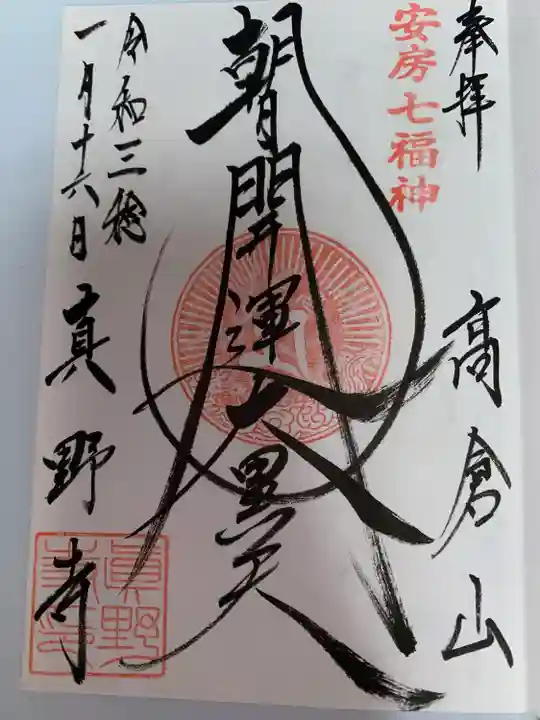 奉拝
高倉山
安房七福神
朝開運大黒天
令和三穐
一月十六日
真野寺